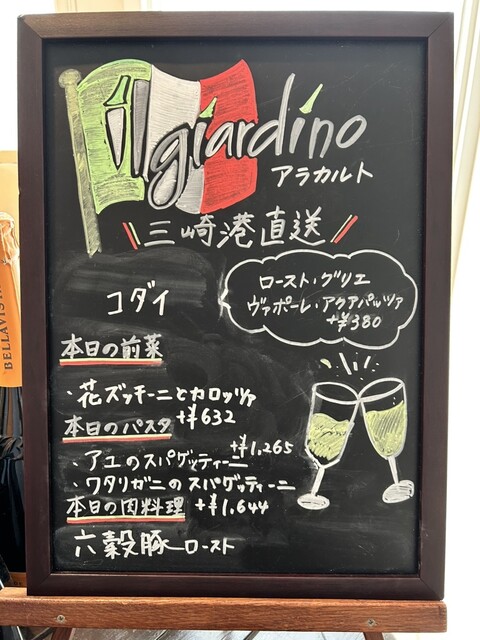 il giardino
アラカルト
三崎港直送
コダイ
ロースト・グリエ
ヴァポーレ・アクアパッツァ
+¥380
本日の前菜
・花ズッキーニとカロッツァ
+¥632
本日のパスタ
+¥1,265
・アユのスパゲッティーニ
・ワタリガニのスパゲッティーニ
本日の肉料理 +¥1,644
六穀豚ロースト
BELLAVISTA